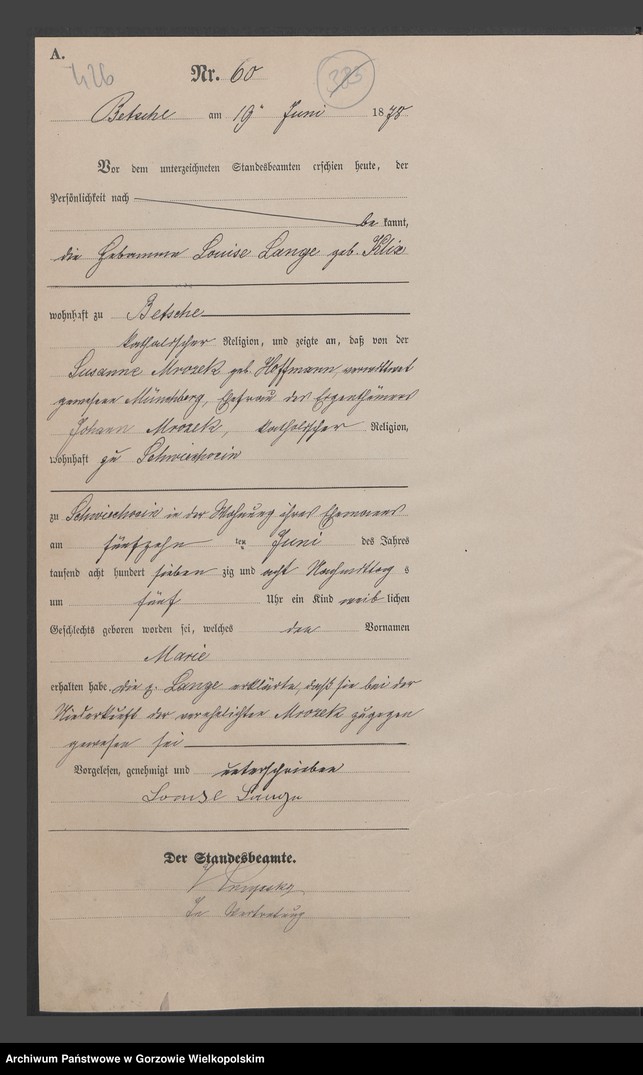 A.
426
Nr. 60
385
Betsche am 19 Juni 1878
Vor dem unterzeichneten Standesbeamten erschien heute, der
Persönlichkeit nach
be kannt,
die Hebamme Louise Lange geb. Klix
wohnhaft zu Betsche
katholischer Religion, und zeigte an, daß von der
Susanne Mrozek geb. Hoffmann, verwittwet
gewesene Münchberg, Ehefrau des Eigenthümers
Johann Mrozek, katholischer Religion,
wohnhaft zu Schwiechocin
zu Schwiechocin in der Wohnung ihres Ehemannes
am fünfzehn ten Juni des Jahres
tausend acht hundert sieben zig und acht Nachmittag s
um fünf Uhr ein Kind weib lichen
Geschlechts geboren worden sei, welches den Vornamen
Marie
erhalten habe. Die p. Lange erklärte, daß sie bei der
Niederkunft der verehelichten Mrozek zugegen
gewesen sei
Vorgelesen, genehmigt und unterschrieben
Louise Lange
Der Standesbeamte.
In Vertretung
Archiwum Państwowe w Gorzowie Wielkopolskim